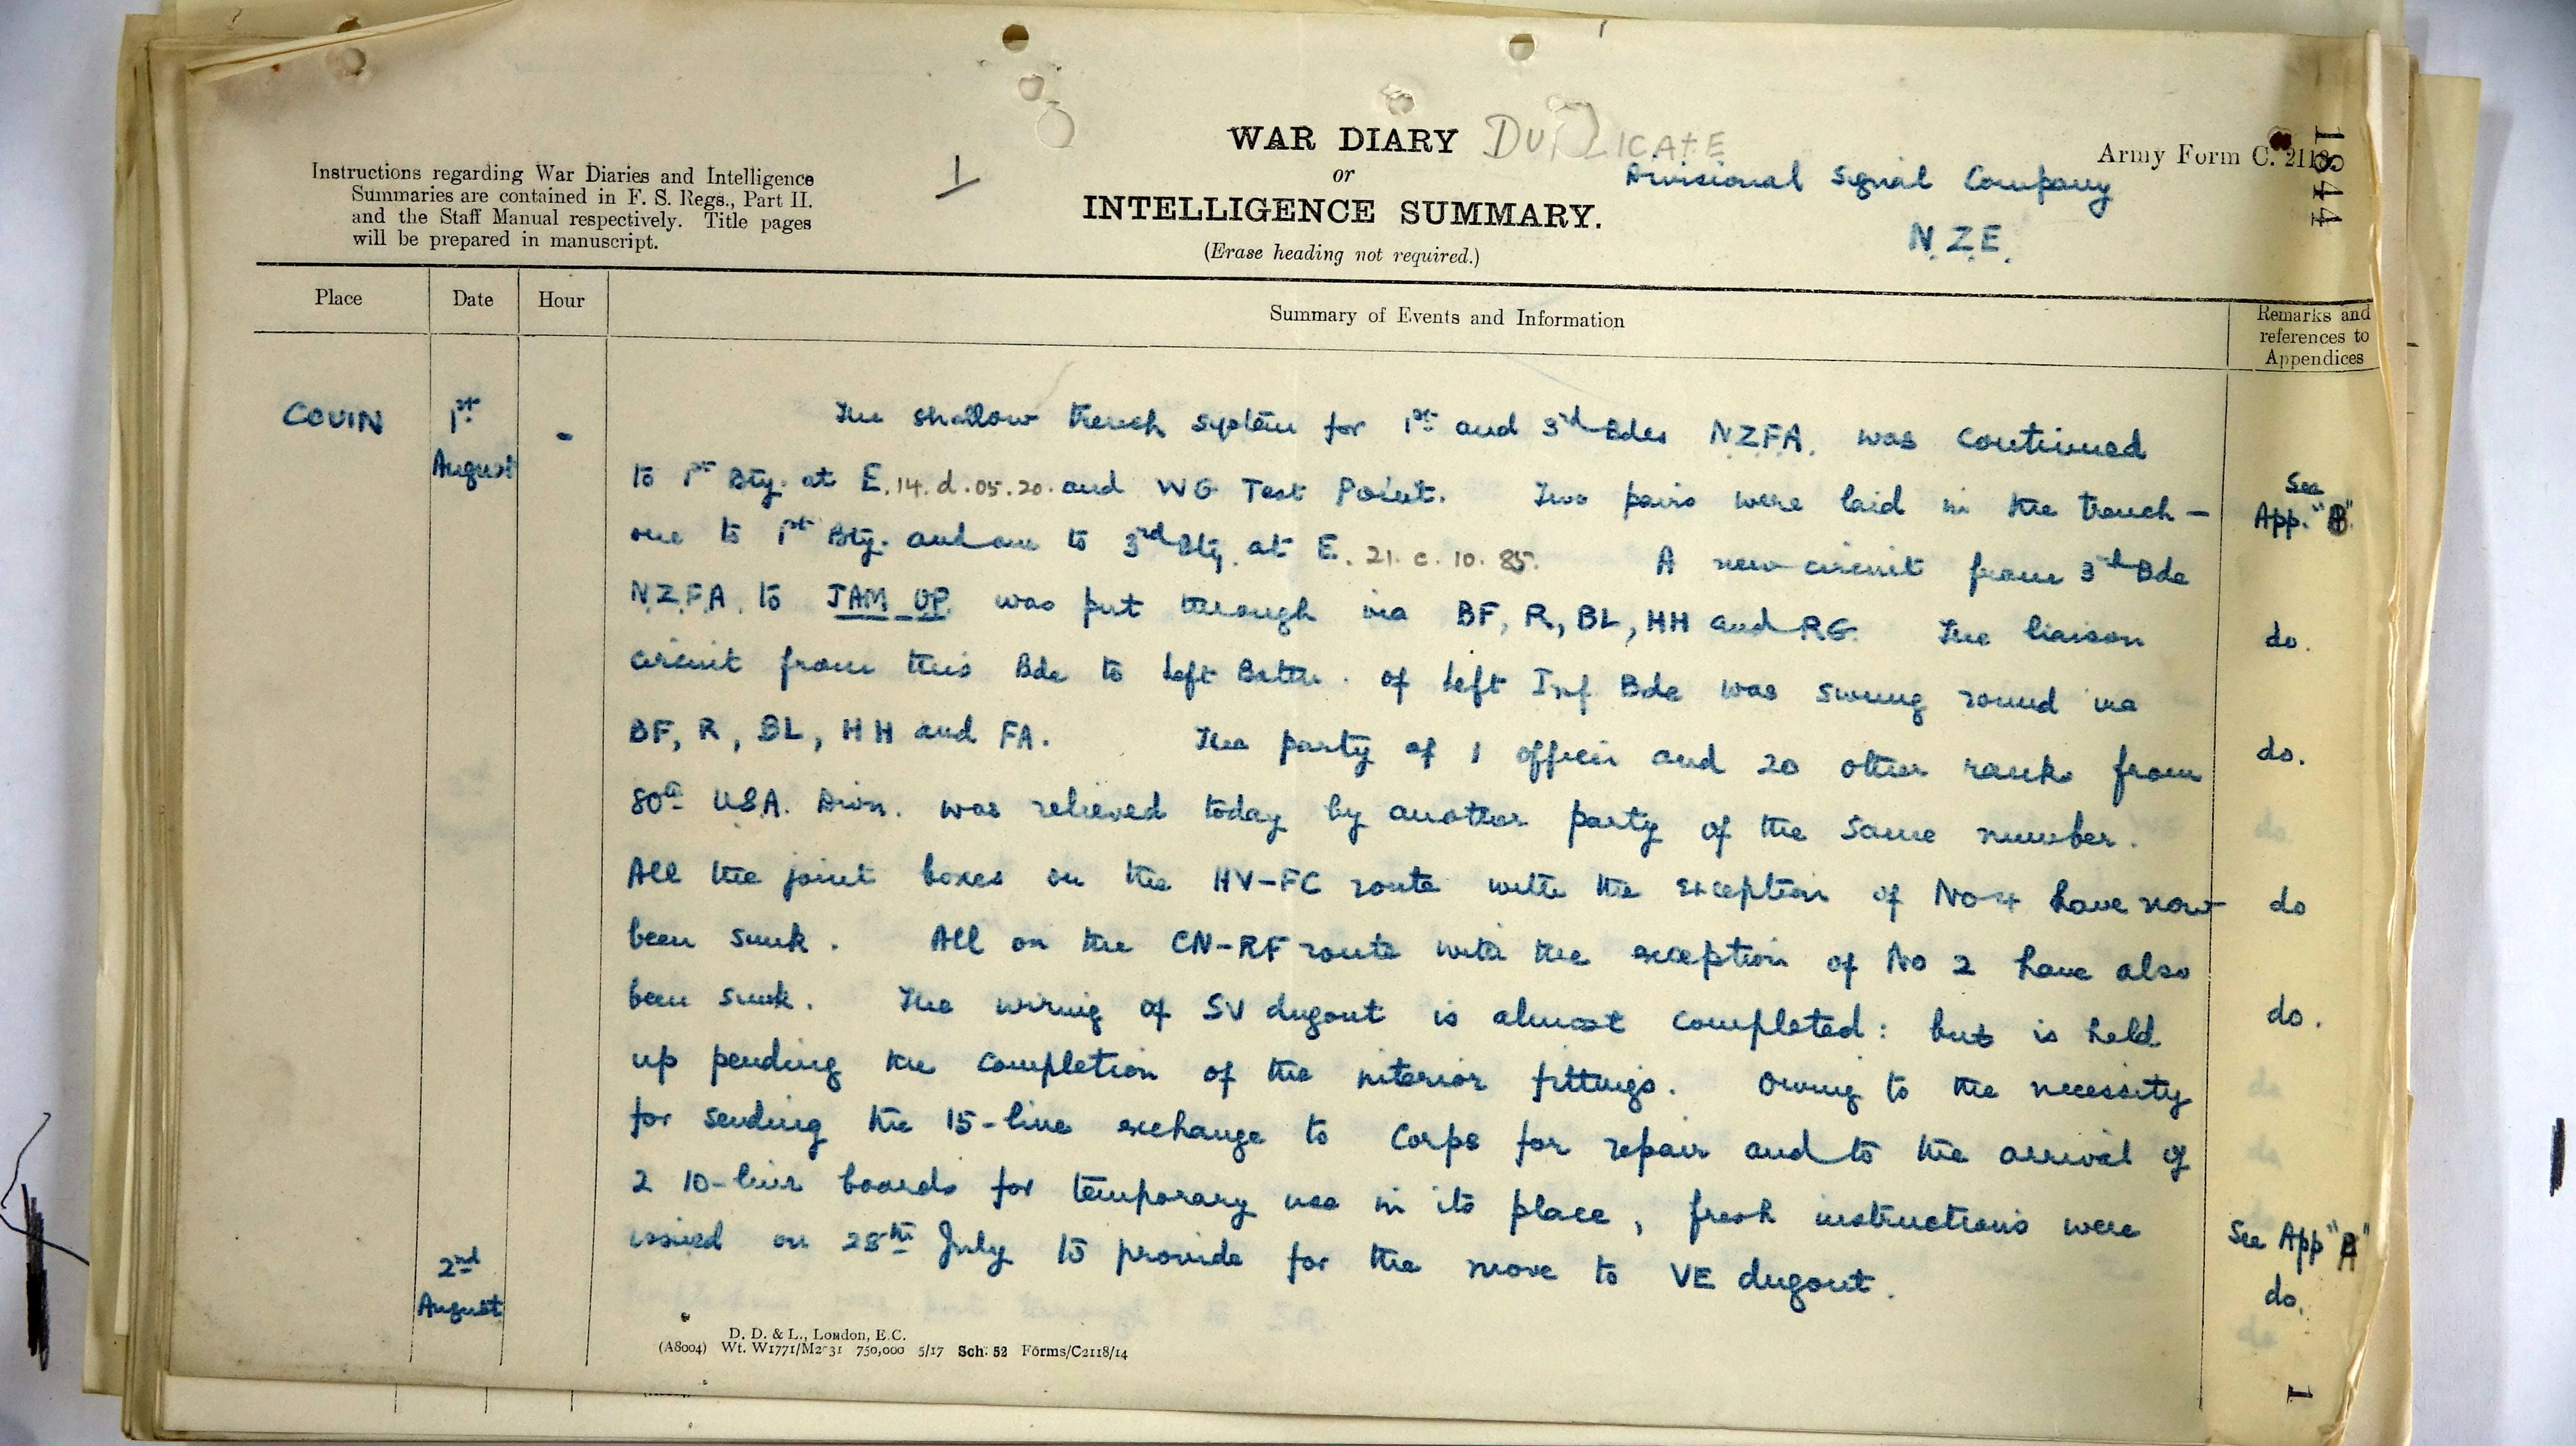 WAR DIARY DUPLICATE
Army Form C. 2118.
18444
or
Divisional Signal Company
INTELLIGENCE SUMMARY.
N.Z.E.
(Erase heading not required.)
1
Instructions regarding War Diaries and Intelligence
Summaries are contained in F. S. Regs., Part II.
and the Staff Manual respectively. Title pages
will be prepared in manuscript.
Place Date Hour Summary of Events and Information Remarks and references to Appendices
COUIN 1st August - The shallow trench system for 1st and 3rd Bdes N.Z.F.A. was continued
to 1st Bty. at E.14.d.05.20. and WG Test Point. Two pairs were laid in the trench — See App. "B"
one to 1st Bty. and one to 3rd Bty. at E.21.c.10.85. A new circuit from 3rd Bde
N.Z.F.A. to JAM OP was put through via BF, R, BL, HH and RG. The liaison do.
circuit from this Bde to Left Battn. of Left Inf Bde was swung round via
BF, R, BL, HH and FA. The party of 1 officer and 20 other ranks from do.
80th U.S.A. Divn. was relieved today by another party of the same number.
All the joint boxes on the HV-FC route with the exception of No 4 have now do
been sunk. All on the CN-RF route with the exception of No 2 have also
been sunk. The wiring of SV dugout is almost completed: but is held do.
up pending the completion of the interior fittings. Owing to the necessity
for sending the 15-line exchange to Corps for repair and to the arrival of
2 10-line boards for temporary use in its place, fresh instructions were See App "A"
2nd August issued on 28th July to provide for the move to VE dugout. do.
D. D. & L., London, E.C.
(A8004) Wt. W1771/M2031 750,000 5/17 Sch. 52 Forms/C2118/14
1